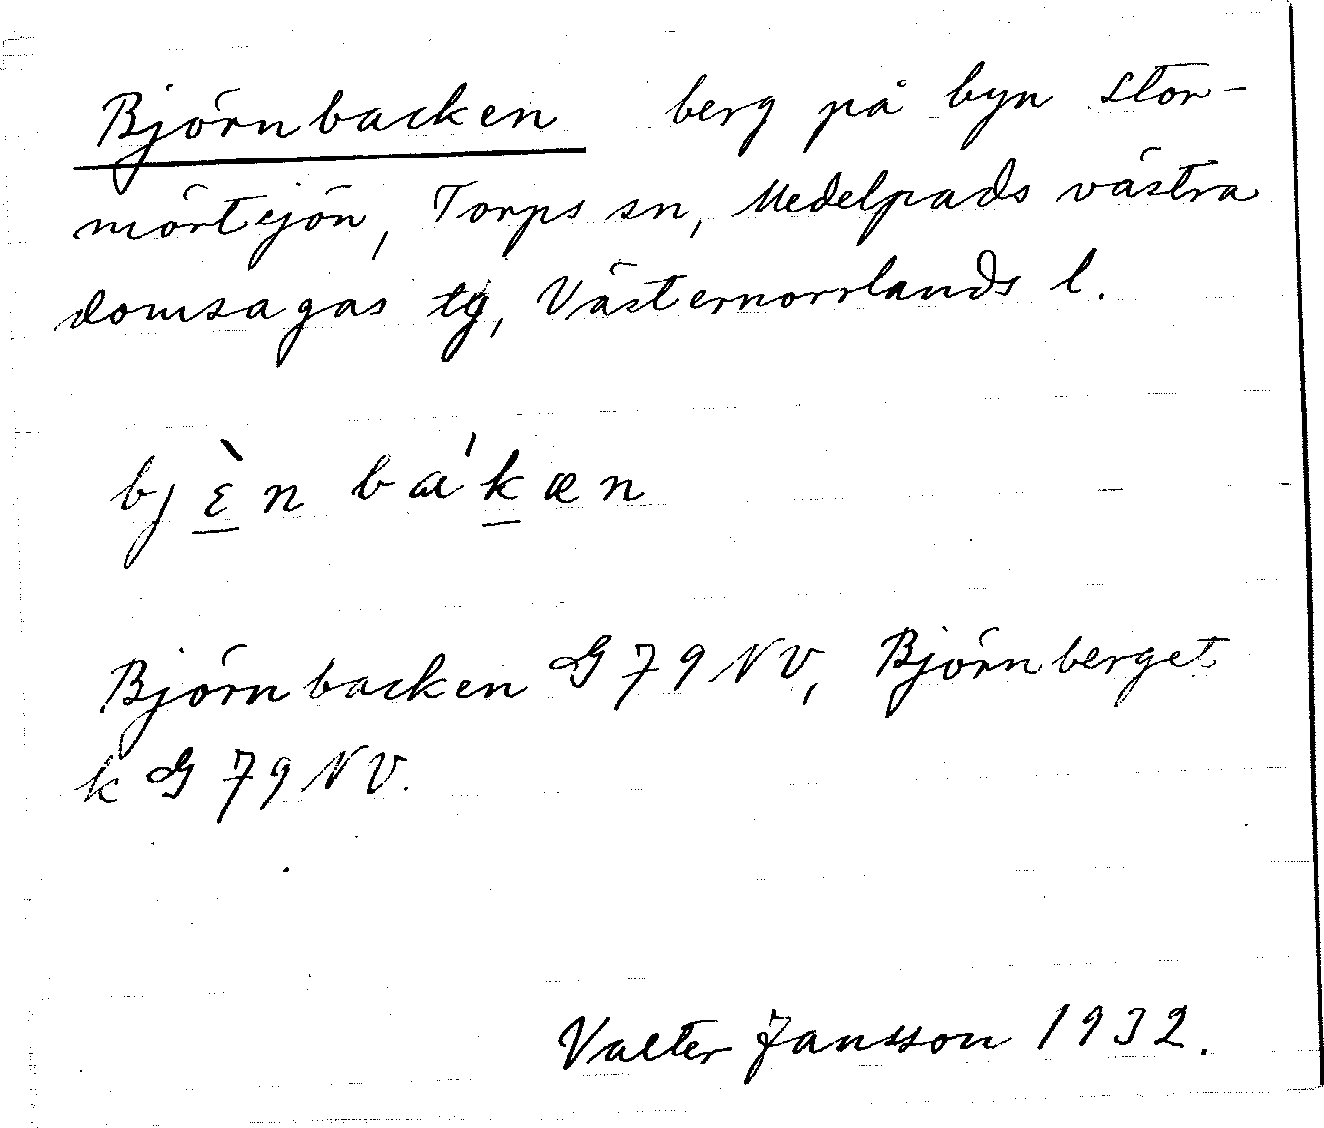 Björnbacken berg på byn Stor-
mörtsjön, Torps sn, Medelpads västra
domsagas tg, Västernorrlands l.
bjɛ̀n ba'kæn
Björnbacken G 79 NV, Björnberget
k G 79 NV.
Valter Jansson 1932.